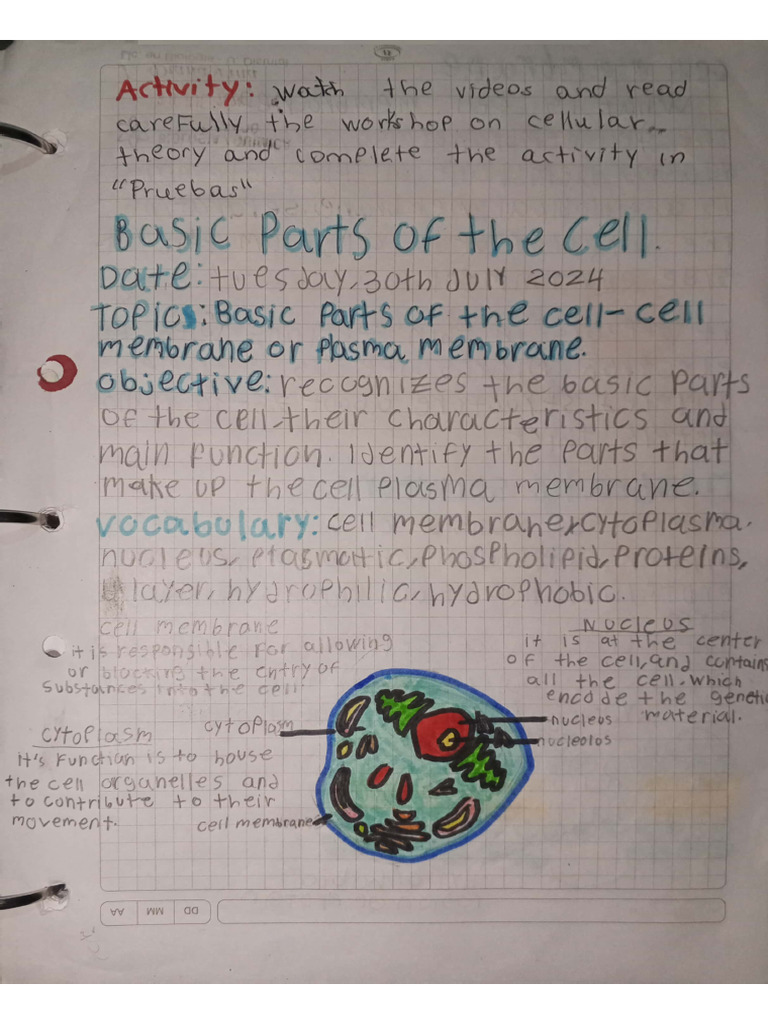 Activity: Watch the videos and read
carefully the workshop on cellular
theory and complete the activity in
"Pruebas"
Basic Parts of the Cell.
Date: tuesday, 30th July 2024
Topic: Basic parts of the cell-cell
membrane or plasma membrane.
objective: recognizes the basic parts
of the cell, their characteristics and
main function. Identify the parts that
make up the cell plasma membrane.
vocabulary: cell membrane, cytoplasma.
nucleus, plasmattic, phospholipid, proteins,
layer, hydrophilic, hydrophobic.
cell membrane
it is responsible for allowing
or blocking the entry of
substances into the cell
Nucleus
it is at the center
of the cell, and contains
all the cell. which
encode the genetic
material.
cytoplasm
nucleus
nucleolos
cell membrane
cytoplasm
it's function is to house
the cell organelles and
to contribute to their
movement.
DD
MM
AA